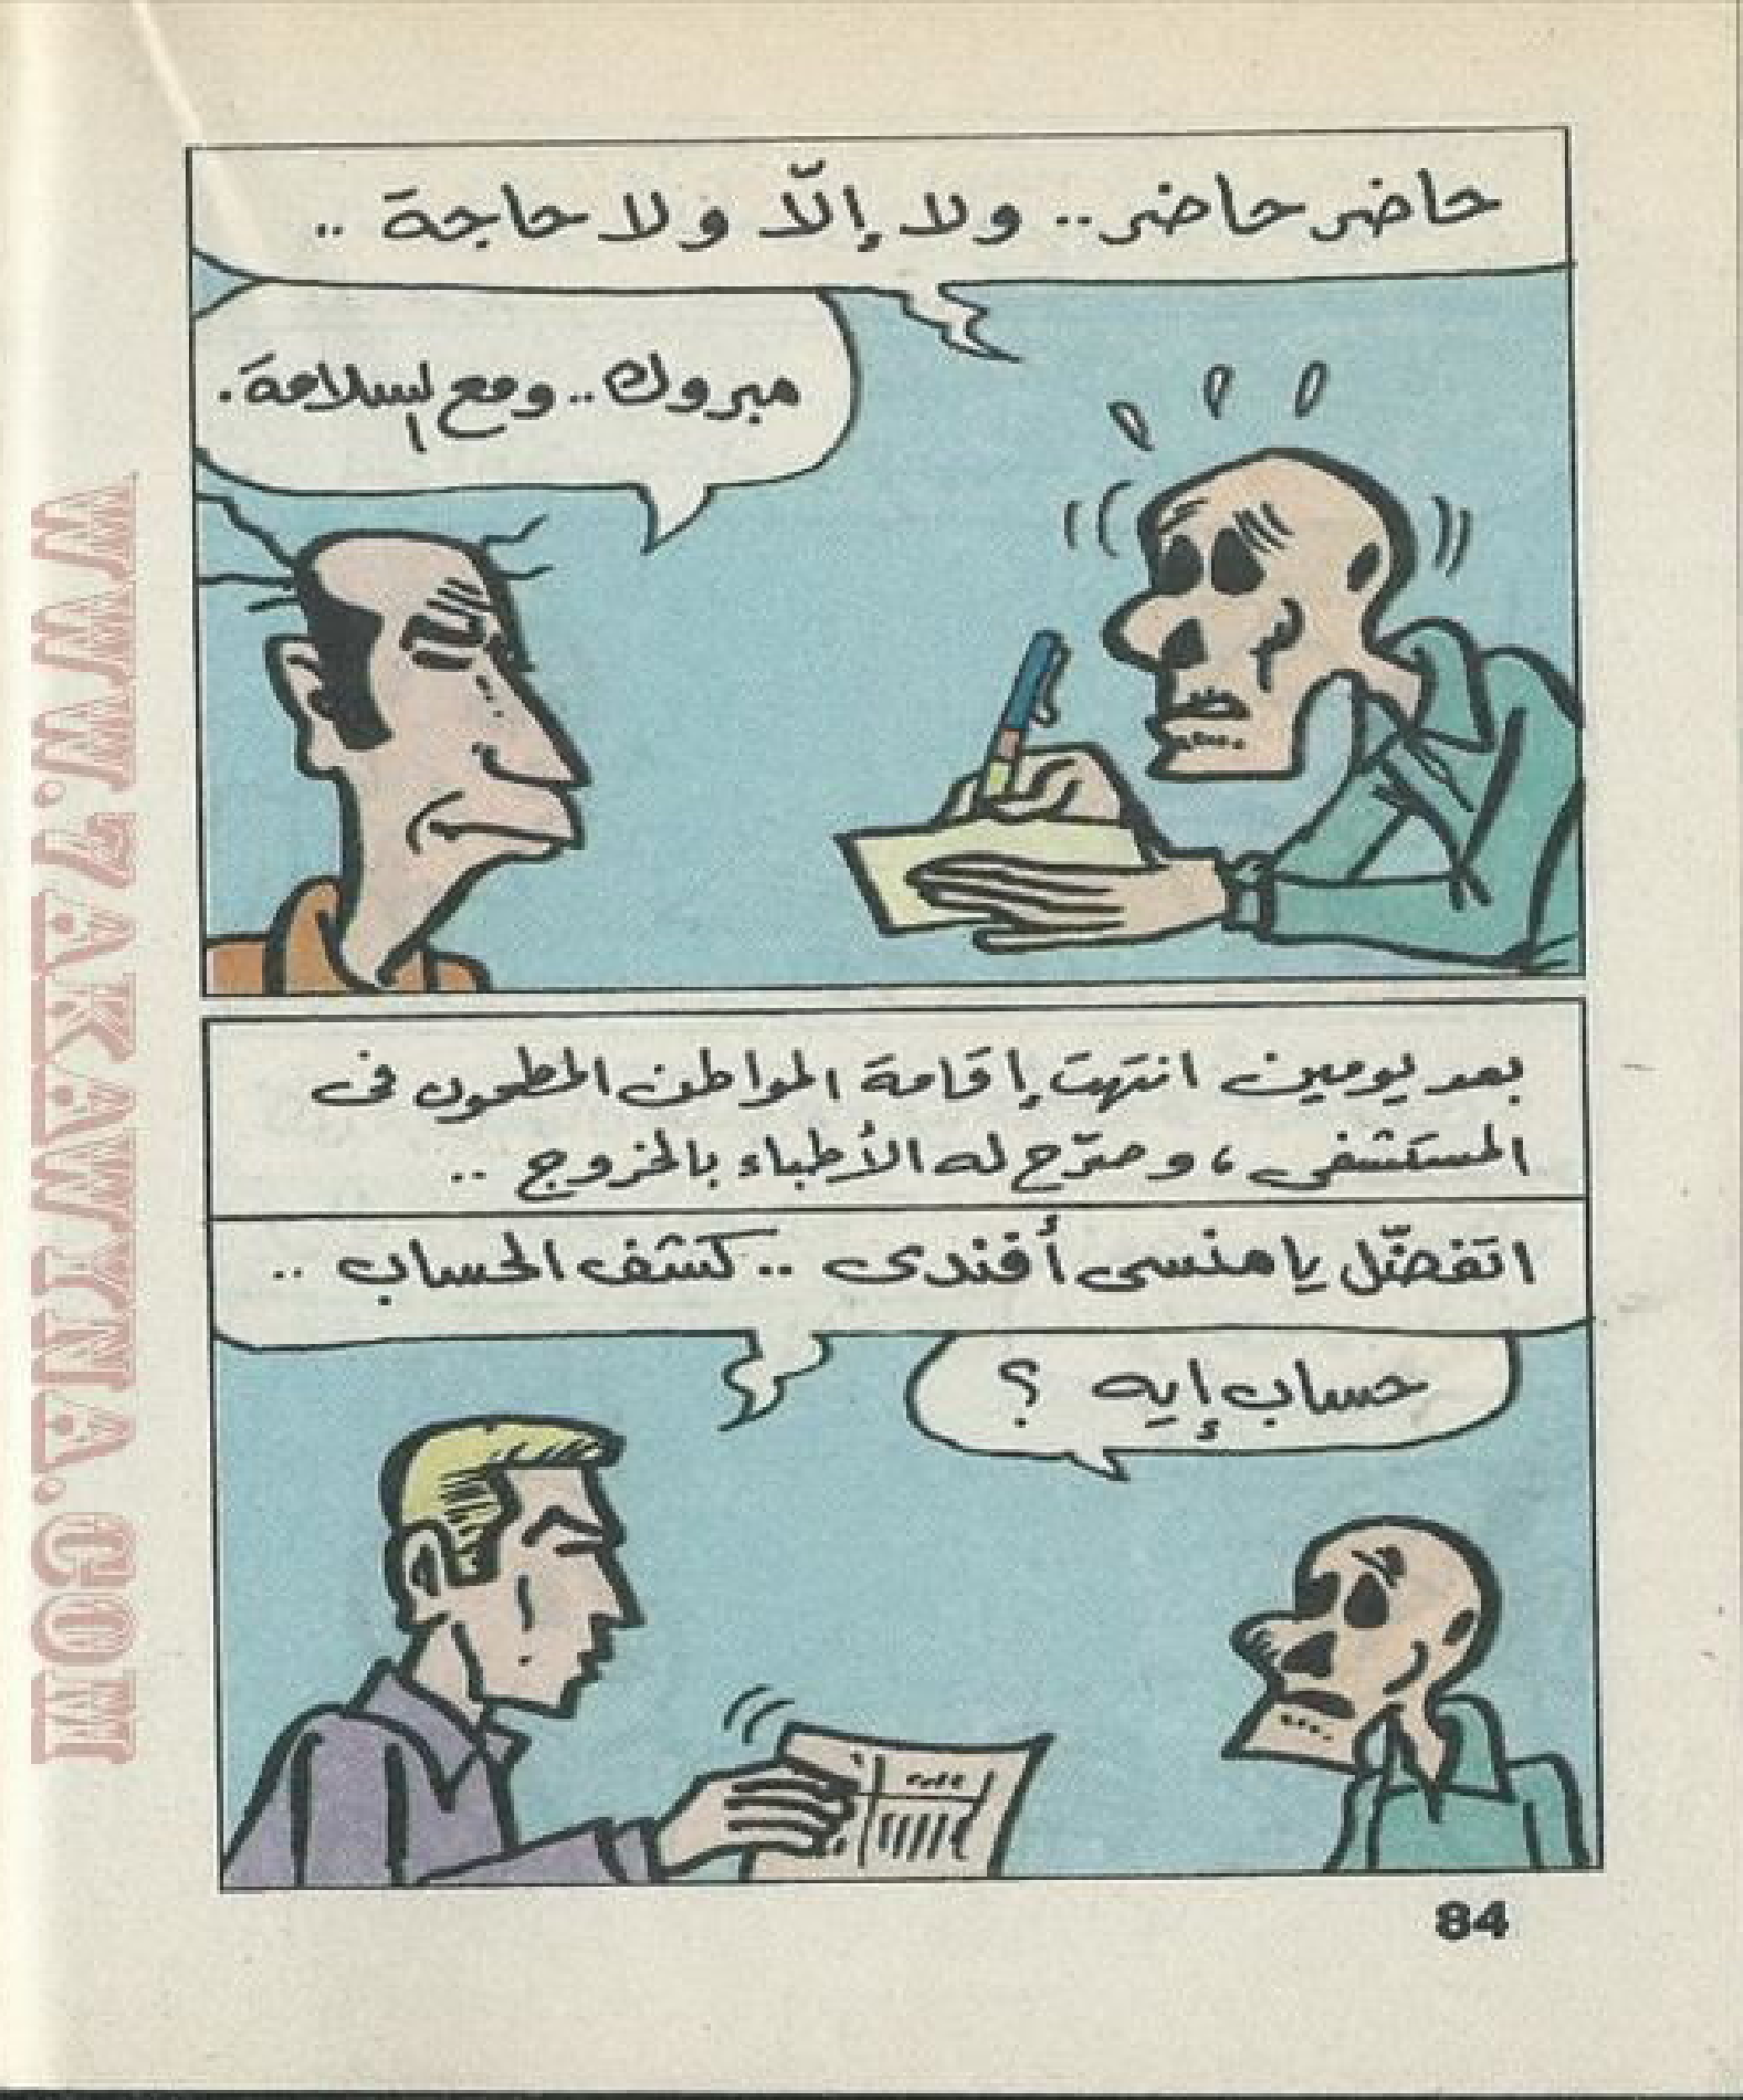 حاضر حاضر.. ولا إلّا ولا حاجة ..
مبروك.. ومع السلامة.
بعد يومين انتهت إقامة المواطن المطحون فى
المستشفى، وصرّح له الأطباء بالخروج ..
اتفضّل يا منسى أفندى .. كشف الحساب ..
حساب إيه ؟
84
WWW.7AKAWINA.COM